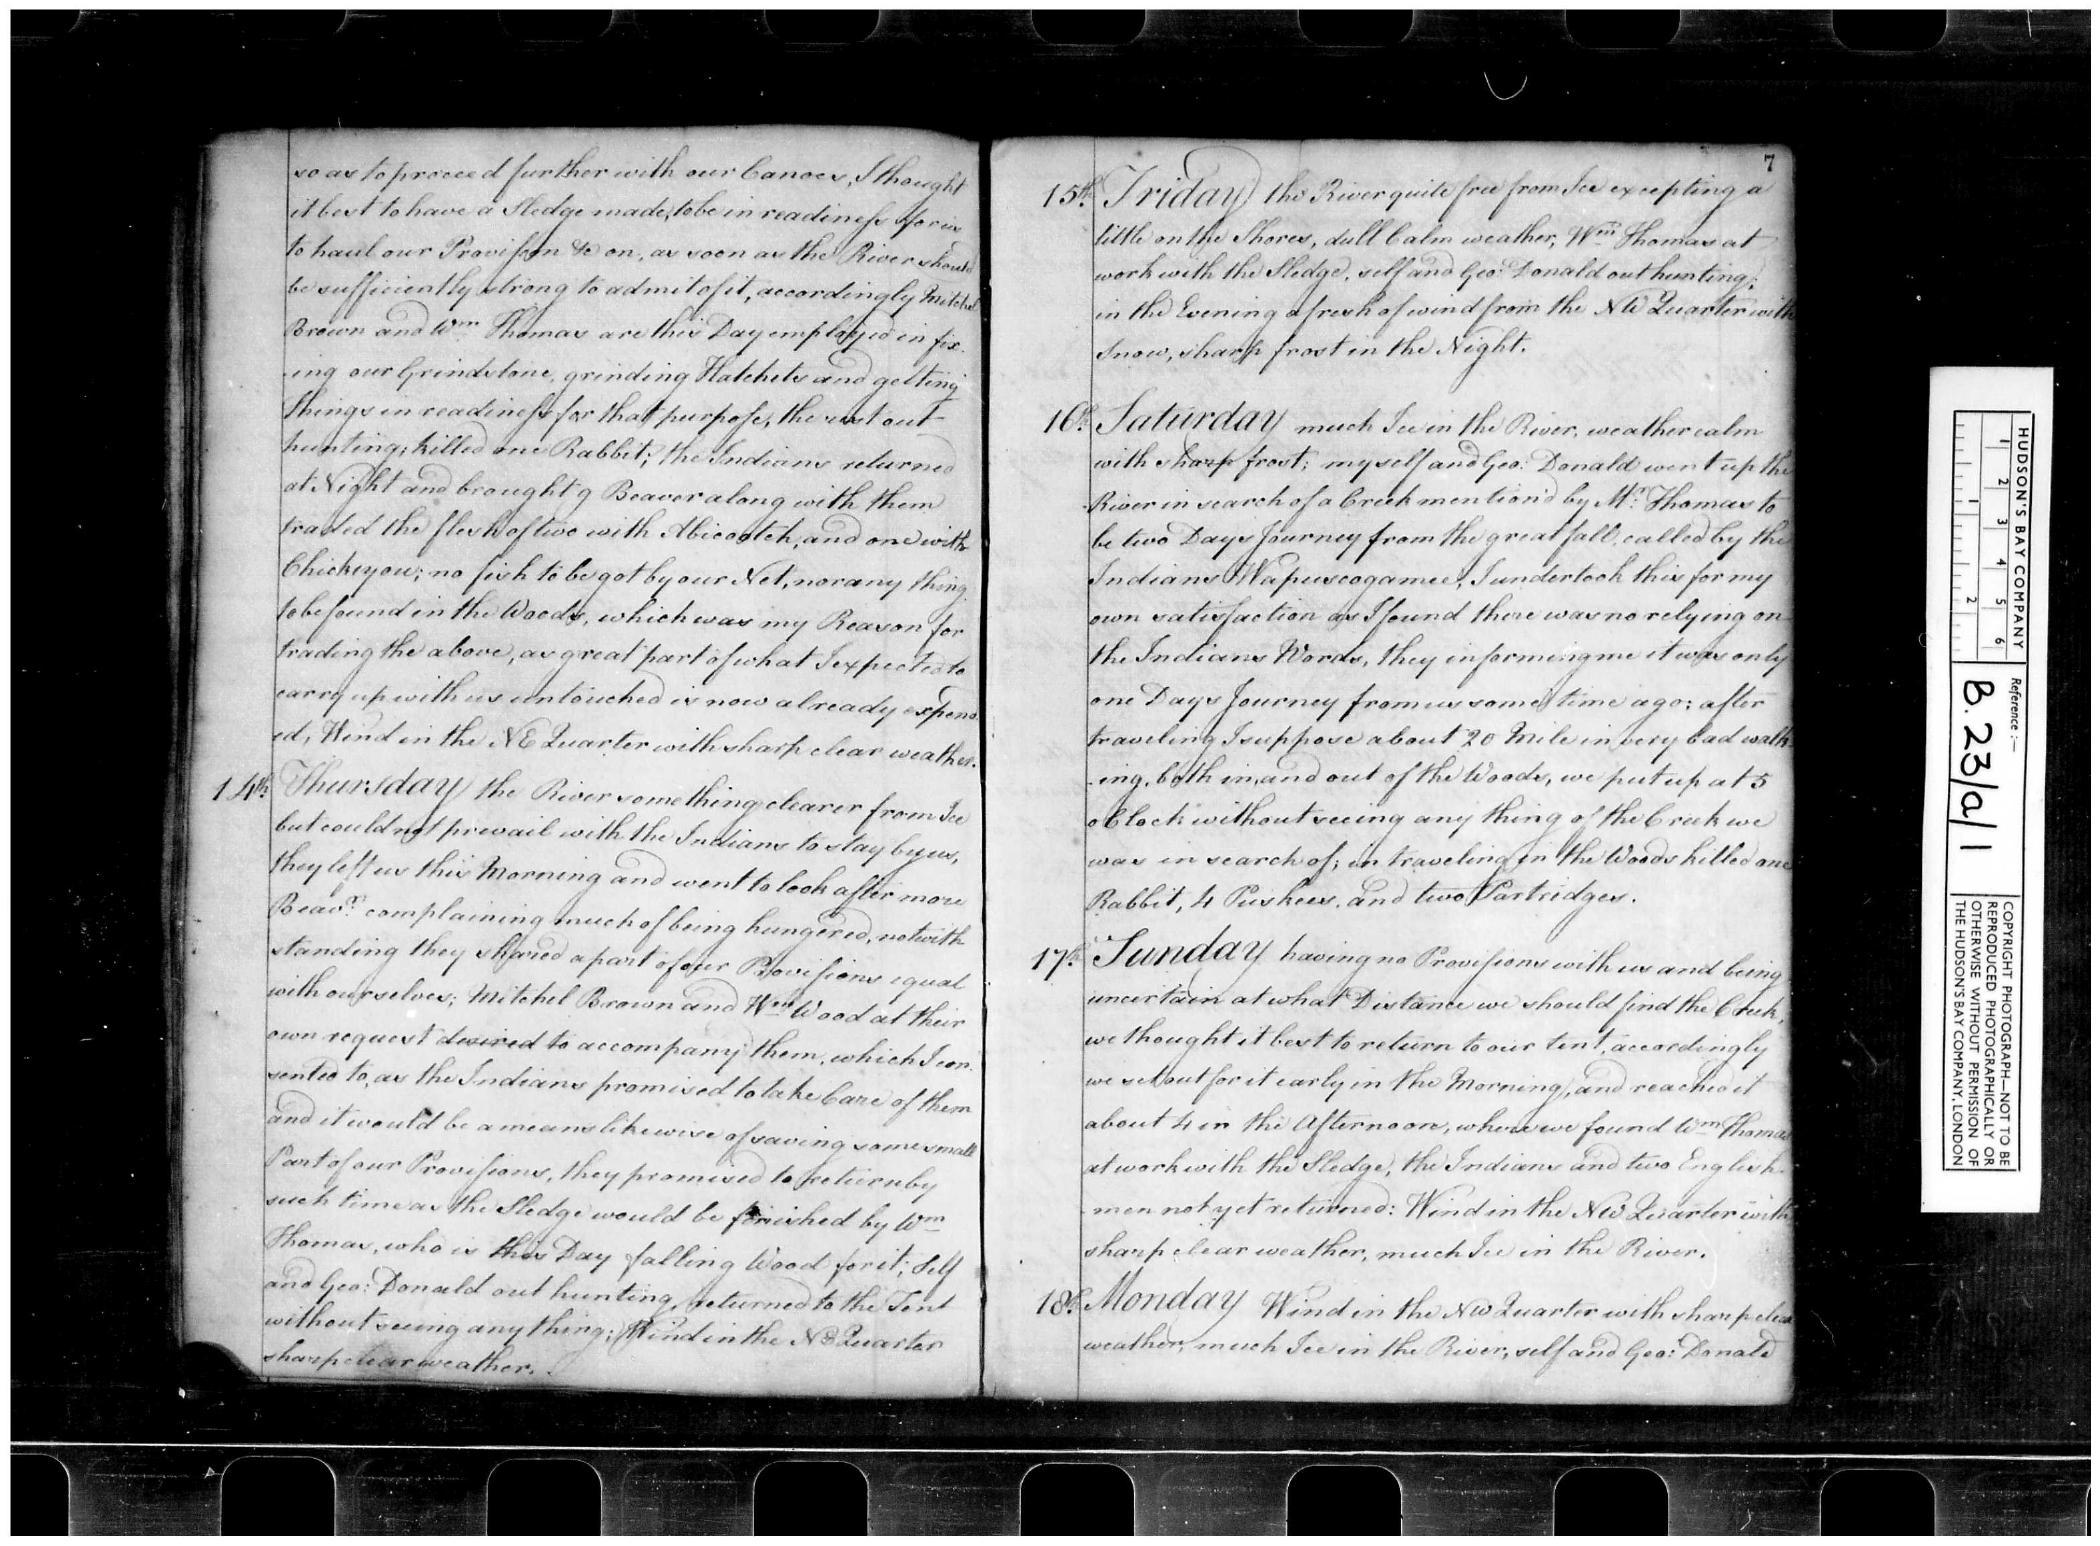 so as to proceed further with our Canoes, I thought
it best to have a Sledge made, to be in readiness for us
to haul our Provision &c on, as soon as the River should
be sufficiently strong to admit of it, accordingly Mitchel
Brown and Wm Thomas are this Day employed in fix-
-ing our Grindstone, grinding Hatchets and getting
things in readiness for that purpose, the rest out
hunting; killed one Rabbit; the Indians returned
at Night and brought 9 Beaver along with them
traded the flesh of two with Abicootch, and one with
Chickeyou; no fish to be got by our Net, nor any thing
to be found in the Woods, which was my Reason for
trading the above, as great part of what I expected to
carry up with us untouched is now already expend
ed, Wind in the NE Quarter with sharp clear weather.
14th Thursday the River something clearer from Ice
but could not prevail with the Indians to stay by us,
they left us this Morning and went to look after more
Beavr complaining much of being hungered, notwith
standing they shared a part of our Provisions equal
with ourselves; Mitchel Brown and Wm Wood at their
own request desired to accompany them, which I con
sented to, as the Indians promised to take Care of them
and it would be a means likewise of saving some small
Part of our Provisions, they promised to return by
such time as the Sledge would be finished by Wm
Thomas, who is this Day falling Wood for it; Self
and Geo: Donald out hunting, returned to the Tent
without seeing any thing; Wind in the NE Quarter
sharp clear weather.
7
15th Friday the River quite free from Ice excepting a
little on the Shores, dull Calm weather, Wm Thomas at
work with the Sledge, self and Geo: Donald out hunting;
in the Evening a fresh of wind from the NW Quarter with
Snow, sharp frost in the Night.
16th Saturday much Ice in the River, weather calm
with sharp frost; myself and Geo: Donald went up the
River in search of a Creek mention'd by Mr Thomas to
be two Days Journey from the great fall, called by the
Indians Wapuscogamee, I undertook this for my
own satisfaction as I found there was no relying on
the Indians Words, they informing me it was only
one Days Journey from us some time ago; after
traveling I suppose about 20 Mile in very bad walk-
-ing, both in, and out of the Woods, we put up at 5
oClock without seeing any thing of the Creek we
was in search of; in traveling in the Woods killed one
Rabbit, 4 Puskees, and two Partridges.
17th Sunday having no Provisions with us and being
uncertain at what Distance we should find the Creek,
we thought it best to return to our tent, accordingly
we set out for it early in the Morning, and reached it
about 4 in the Afternoon, where we found Wm Thomas
at work with the Sledge, the Indians and two English-
-men not yet returned: Wind in the NW Quarter with
sharp clear weather, much Ice in the River.
18th Monday Wind in the NW Quarter with sharp clear
weather, much Ice in the River, self and Geo: Donald
HUDSON'S BAY COMPANY
1 2 3 4 5 6
1 2
Reference:—
B.23/a/1
COPYRIGHT PHOTOGRAPH—NOT TO BE
REPRODUCED PHOTOGRAPHICALLY OR
OTHERWISE WITHOUT PERMISSION OF
THE HUDSON'S BAY COMPANY, LONDON